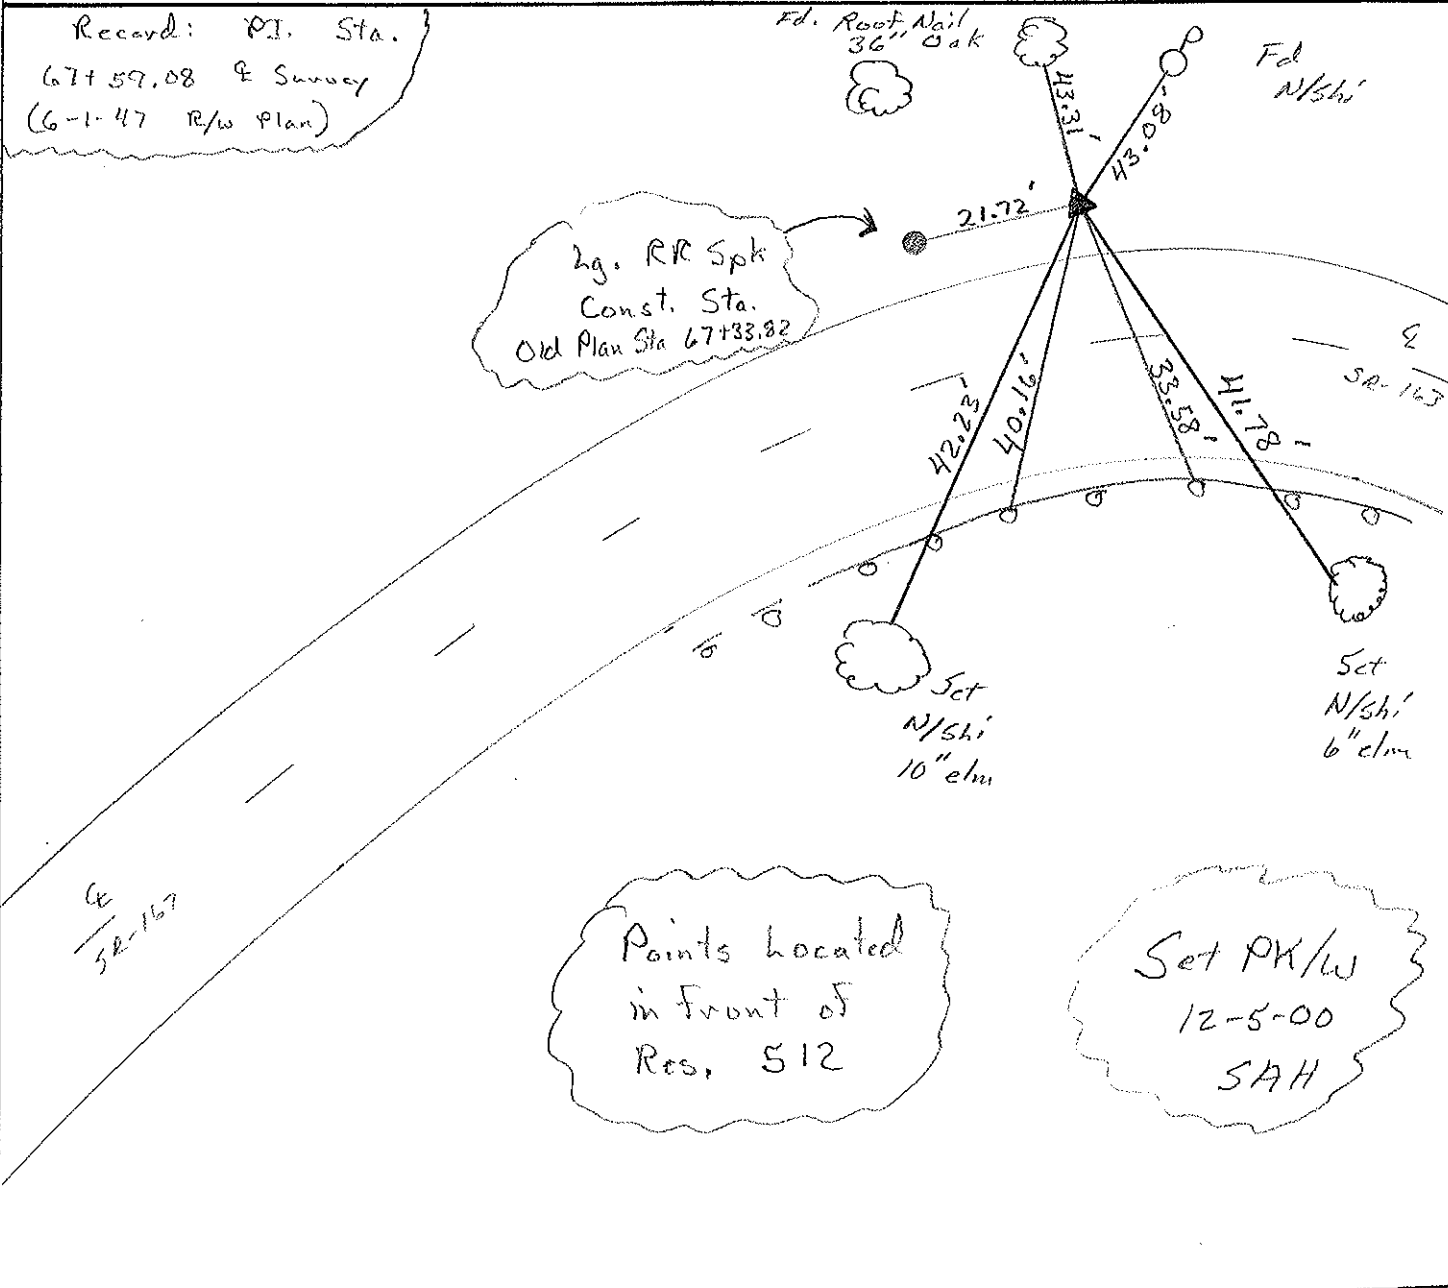 Record: P.I. Sta.
67+59.08 ℄ Survey
(6-1-47 R/W Plan)
Fd. Roof Nail
36" Oak
P
Fd
N/Shi
43.31'
43.08'
21.72'
Lg. RR Spk
Const. Sta.
Old Plan Sta 67+33.82
℄
42.23'
40.16'
33.58'
41.78'
Set
N/Shi
10" elm
Set
N/Shi
6" elm
℄
Points Located
in front of
Res. 512
Set PK/W
12-5-00
SAH